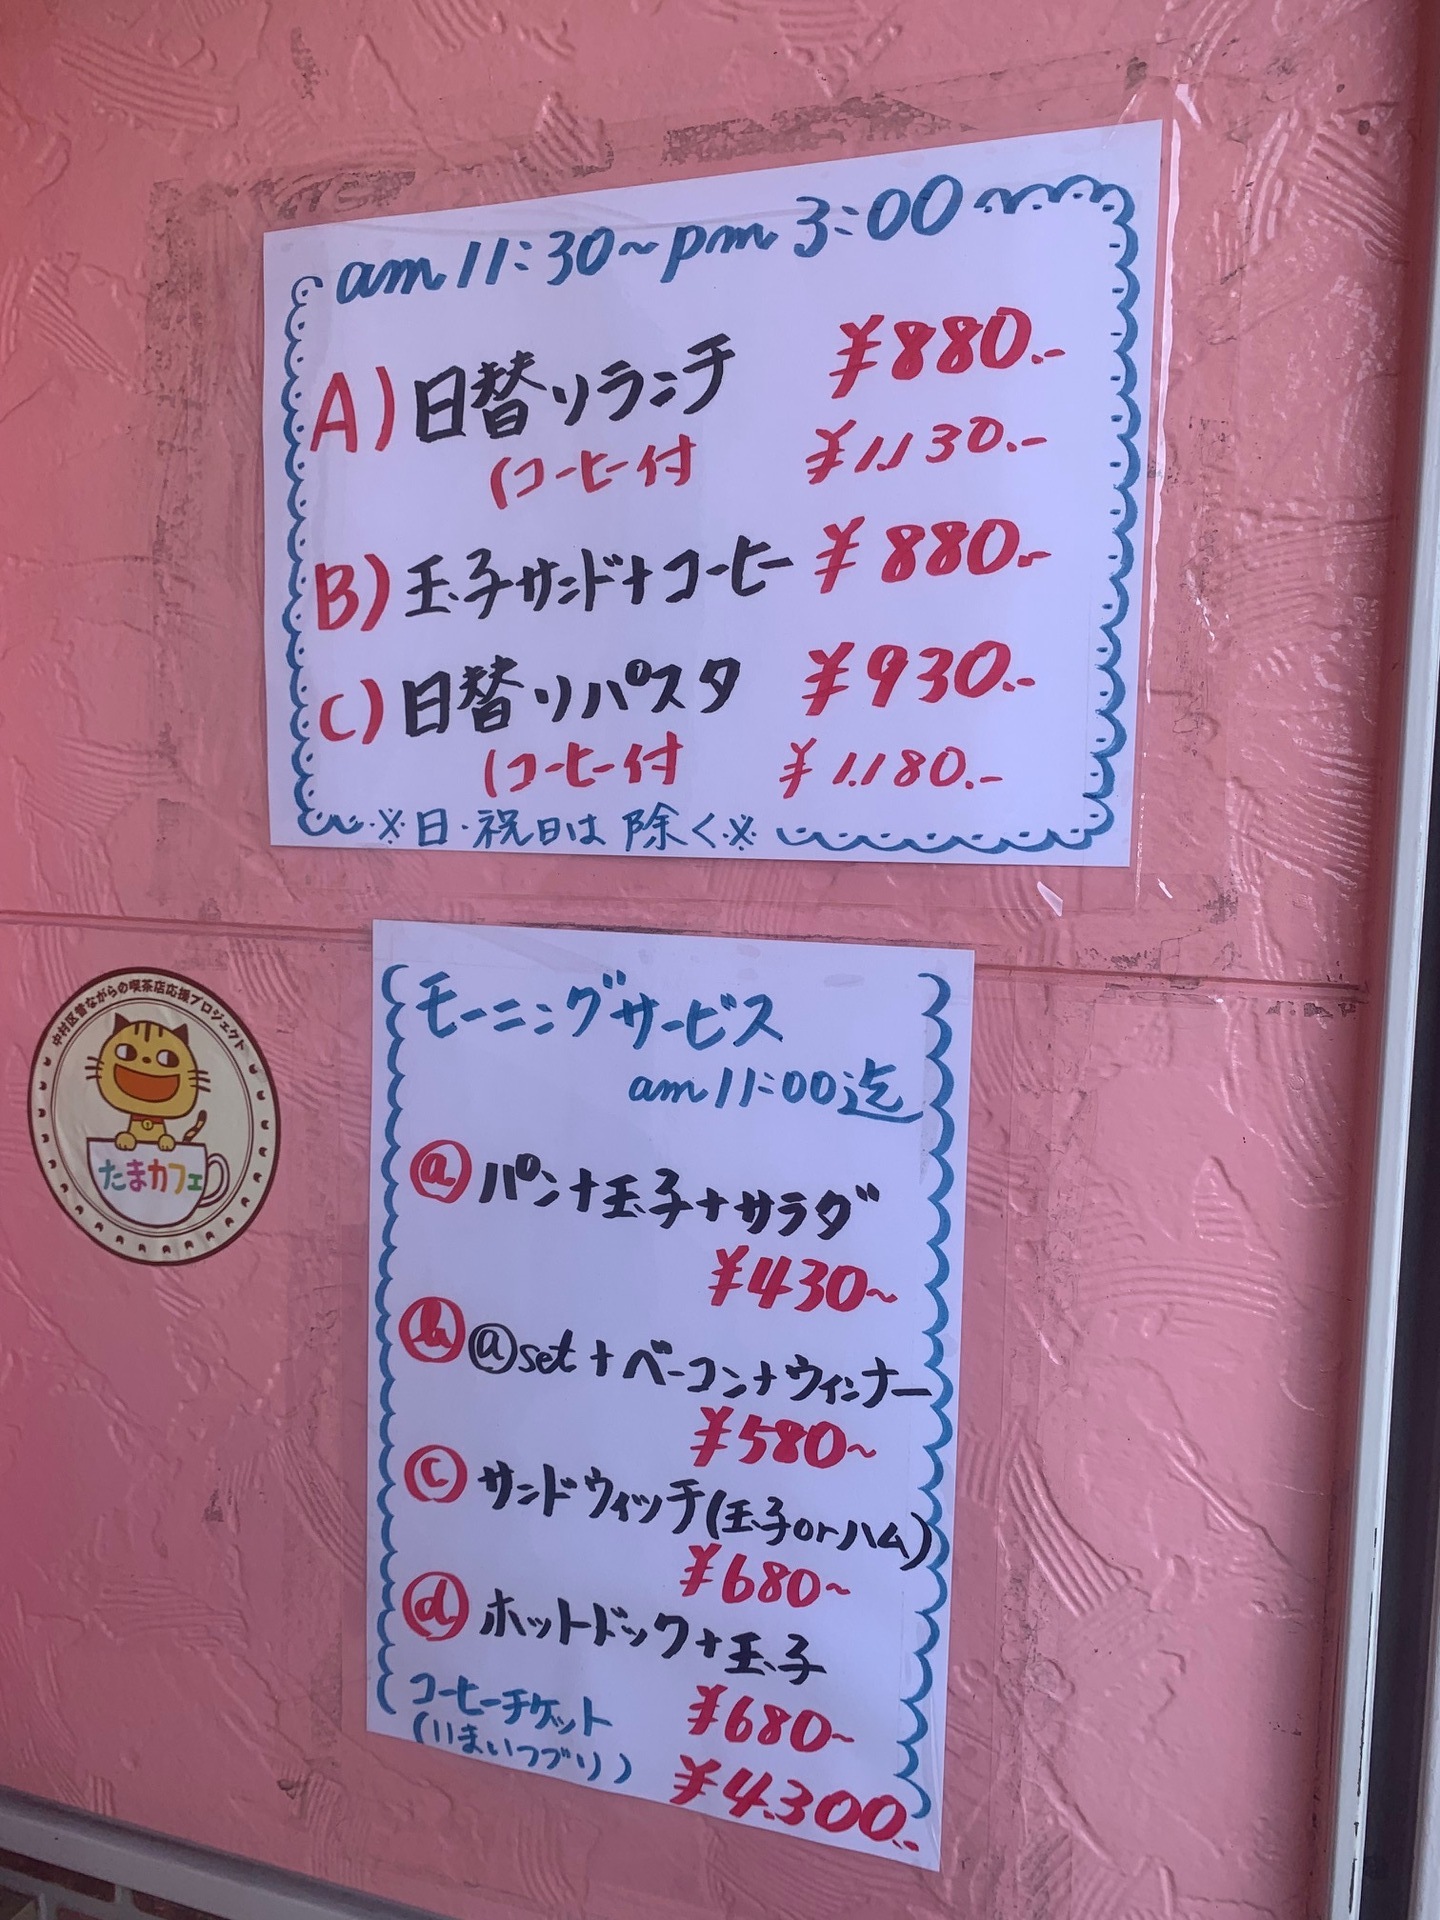 am 11:30～pm 3:00
A) 日替りランチ ¥880.-
(コーヒー付 ¥1,130.-
B) 玉子サンド+コーヒー ¥880.-
C) 日替りパスタ ¥930.-
(コーヒー付 ¥1,180.-
※日・祝日は除く※
モーニングサービス
am 11:00迄
ⓐ パン+玉子+サラダ
¥430～
ⓑ ⓐset+ベーコン+ウィンナー
¥580～
ⓒ サンドウィッチ(玉子orハム)
¥680～
ⓓ ホットドック+玉子
¥680～
コーヒーチケット
(11まいつづり) ¥4,300.-
中村区昔ながらの喫茶店応援プロジェクト
たまカフェ